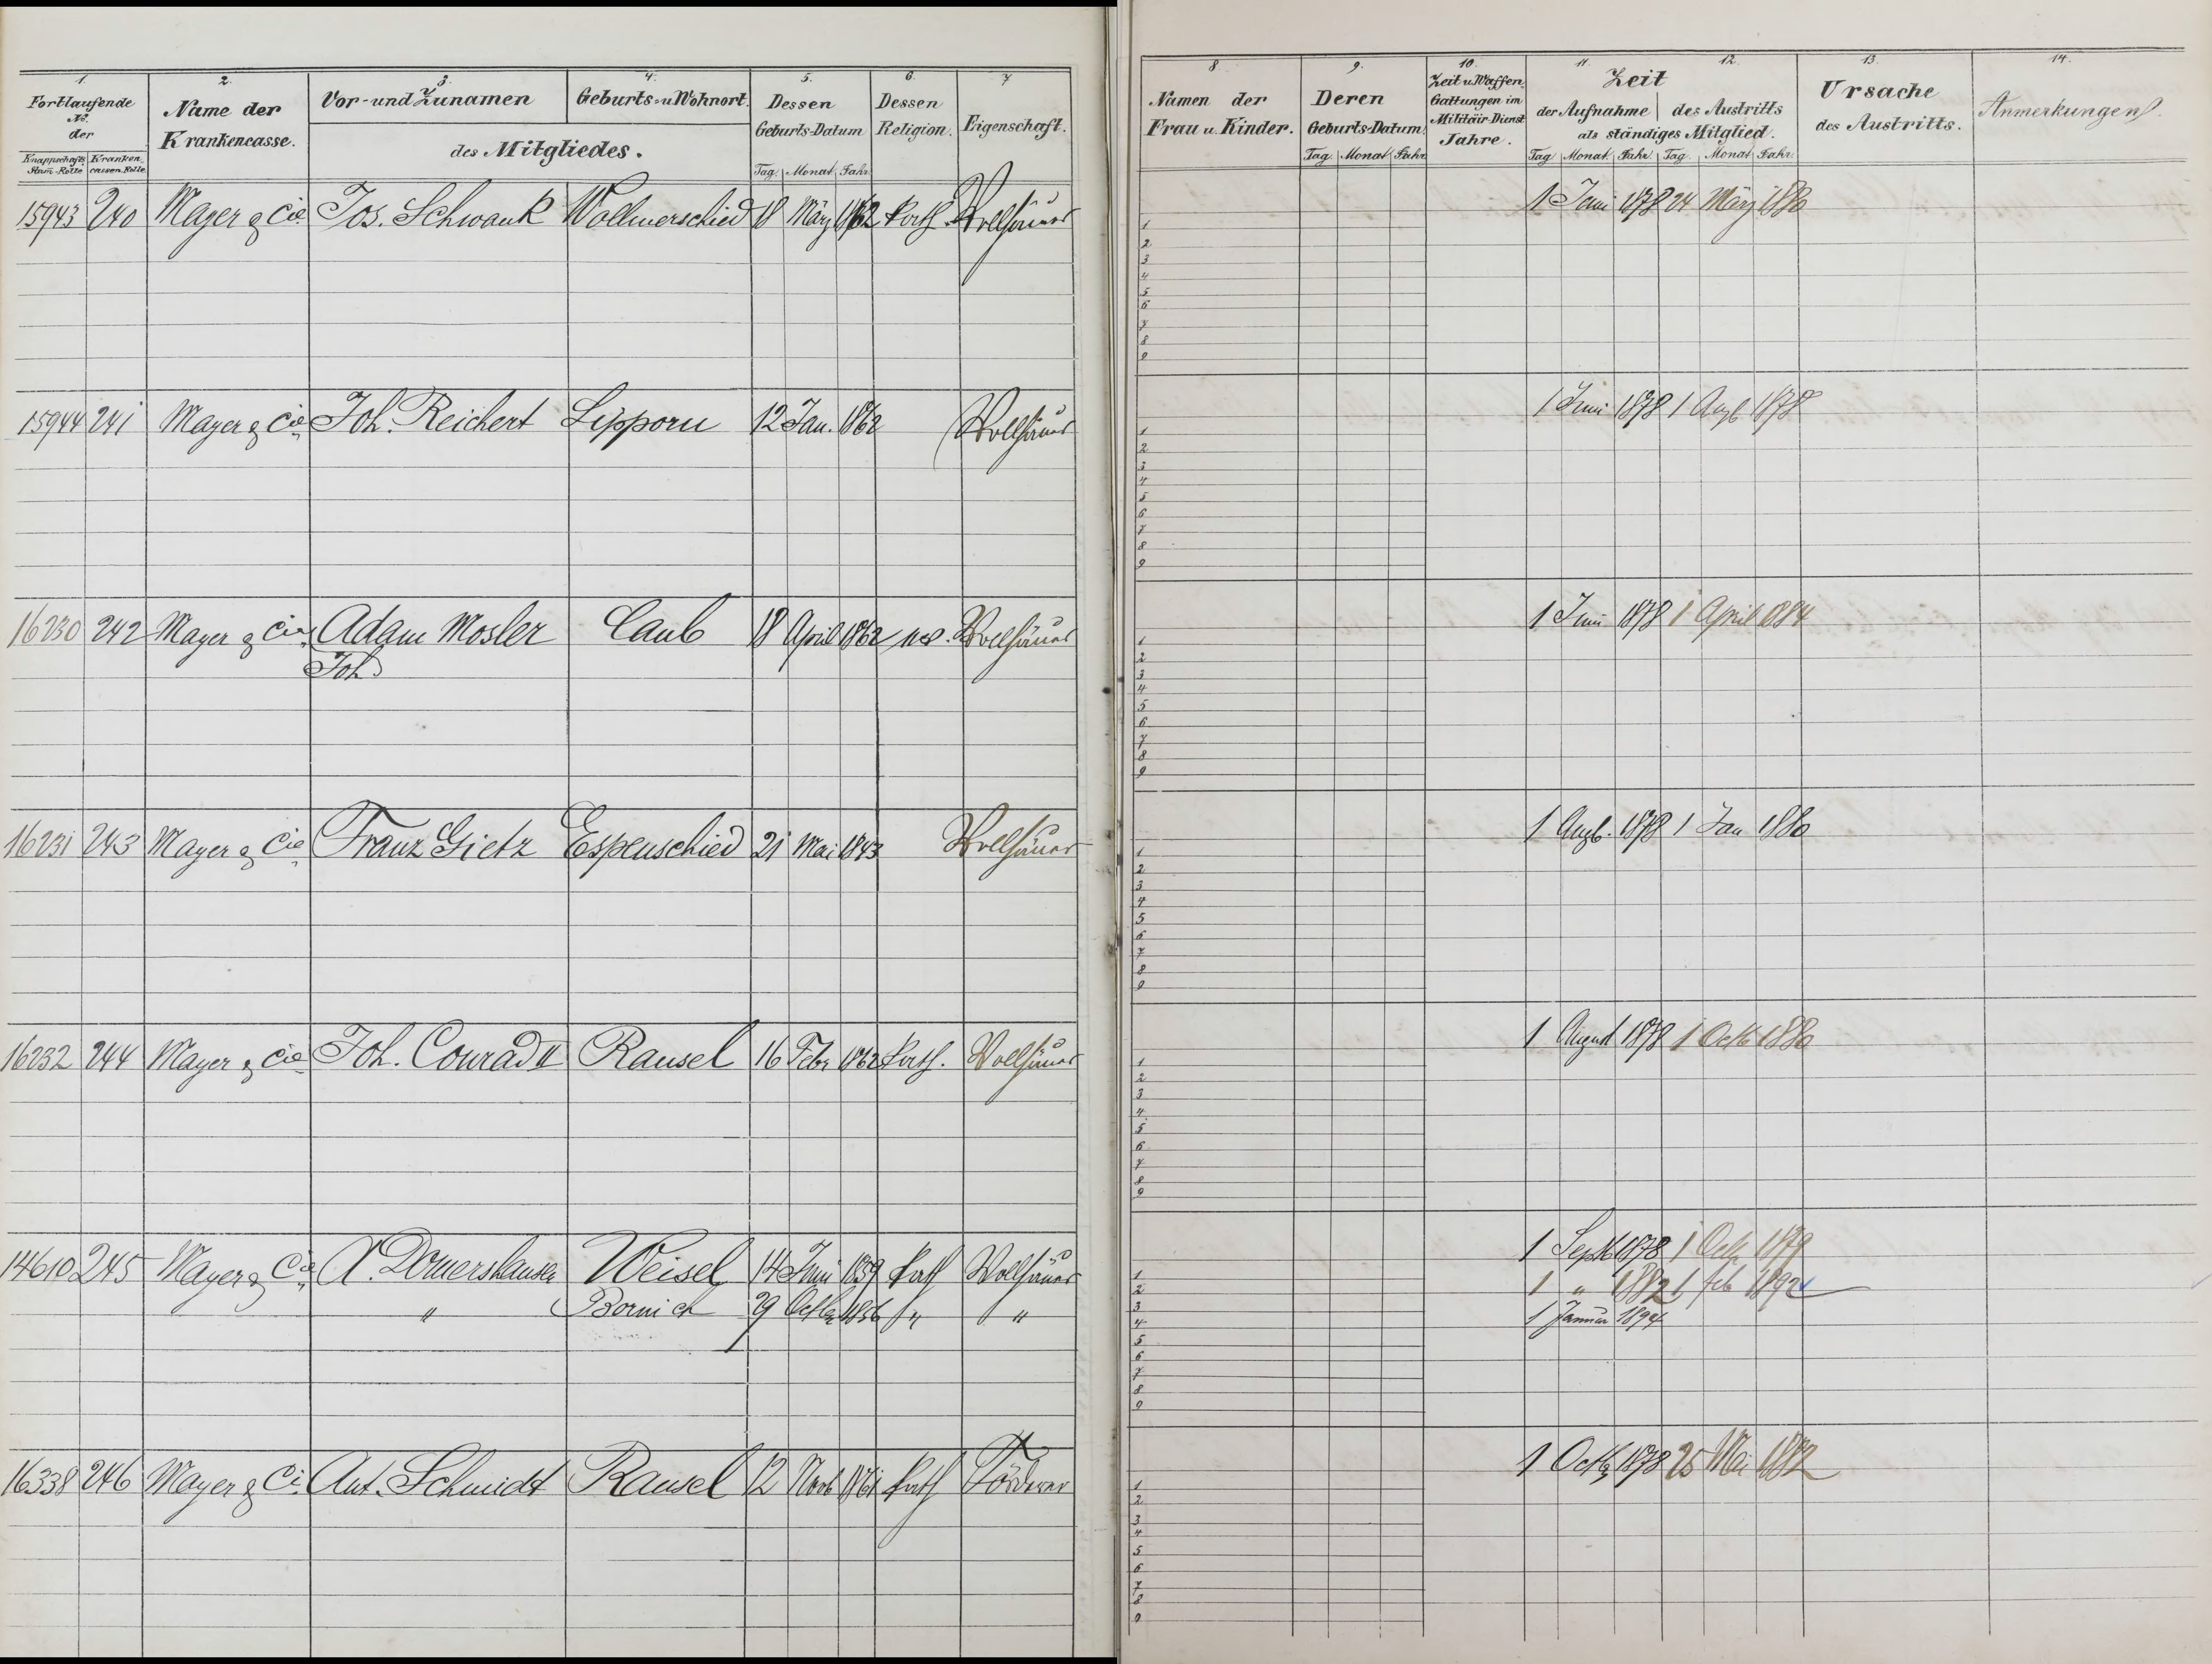 1. 2. 3. 4. 5. 6. 7
Fortlaufende No. der
Knappschafts Stam-Rolle Kranken-cassen-Rolle
Name der Krankencasse.
Vor- und Zunamen Geburts- u. Wohnort.
des Mitgliedes.
Dessen Geburts-Datum
Tag Monat Jahr
Dessen Religion.
Eigenschaft.
8. 9. 10. 11. 12. 13. 14.
Namen der Frau u. Kinder.
Deren Geburts-Datum
Tag Monat Jahr
Zeit u. Waffen Gattungen im Militäir-Dienst Jahre.
Zeit
der Aufnahme des Austritts
als ständiges Mitglied.
Tag Monat Jahr Tag Monat Jahr
Ursache des Austritts.
Anmerkungen.
15943 240 Mayer & Cie Jos. Schwank Wollmerschied 18 März 1862 kath. Vollhäuer 1 Juni 1878 24 März 1880
1
2
3
4
5
6
7
8
9
15944 241 Mayer & Cie Joh. Reichert Lipporn 12 Jan. 1862 Vollhäuer 1 Juni 1878 1 Augb 1878
1
2
3
4
5
6
7
8
9
16230 242 Mayer & Cie Adam Mosler Caub 18 April 1862 Vollhäuer 1 Juni 1878 1 April 1884
Joh
1
2
3
4
5
6
7
8
9
16231 243 Mayer & Cie Franz Gietz Espenschied 21 Mai 1843 Vollhäuer 1 Augb. 1878 1 Jan 1880
1
2
3
4
5
6
7
8
9
16232 244 Mayer & Cie Joh. Conrad II Ransel 16 Febr 1862 kath. Vollhäuer 1 August 1878 1 Octb 1880
1
2
3
4
5
6
7
8
9
14610 245 Mayer & Cie A. Domershausen Weisel 14 Juni 1839 kath Vollhäuer 1 Septb 1878 1 Octb 1879
" Bornich 29 Octbr 1856 " " 1 " 1882 1 feb 1892
1 Januar 1894
1
2
3
4
5
6
7
8
9
16338 246 Mayer & Ci. Ant. Schmidt Ransel 12 Novb 1861 kath Förderer 1 Octb 1878 25 Mai 1882
1
2
3
4
5
6
7
8
9